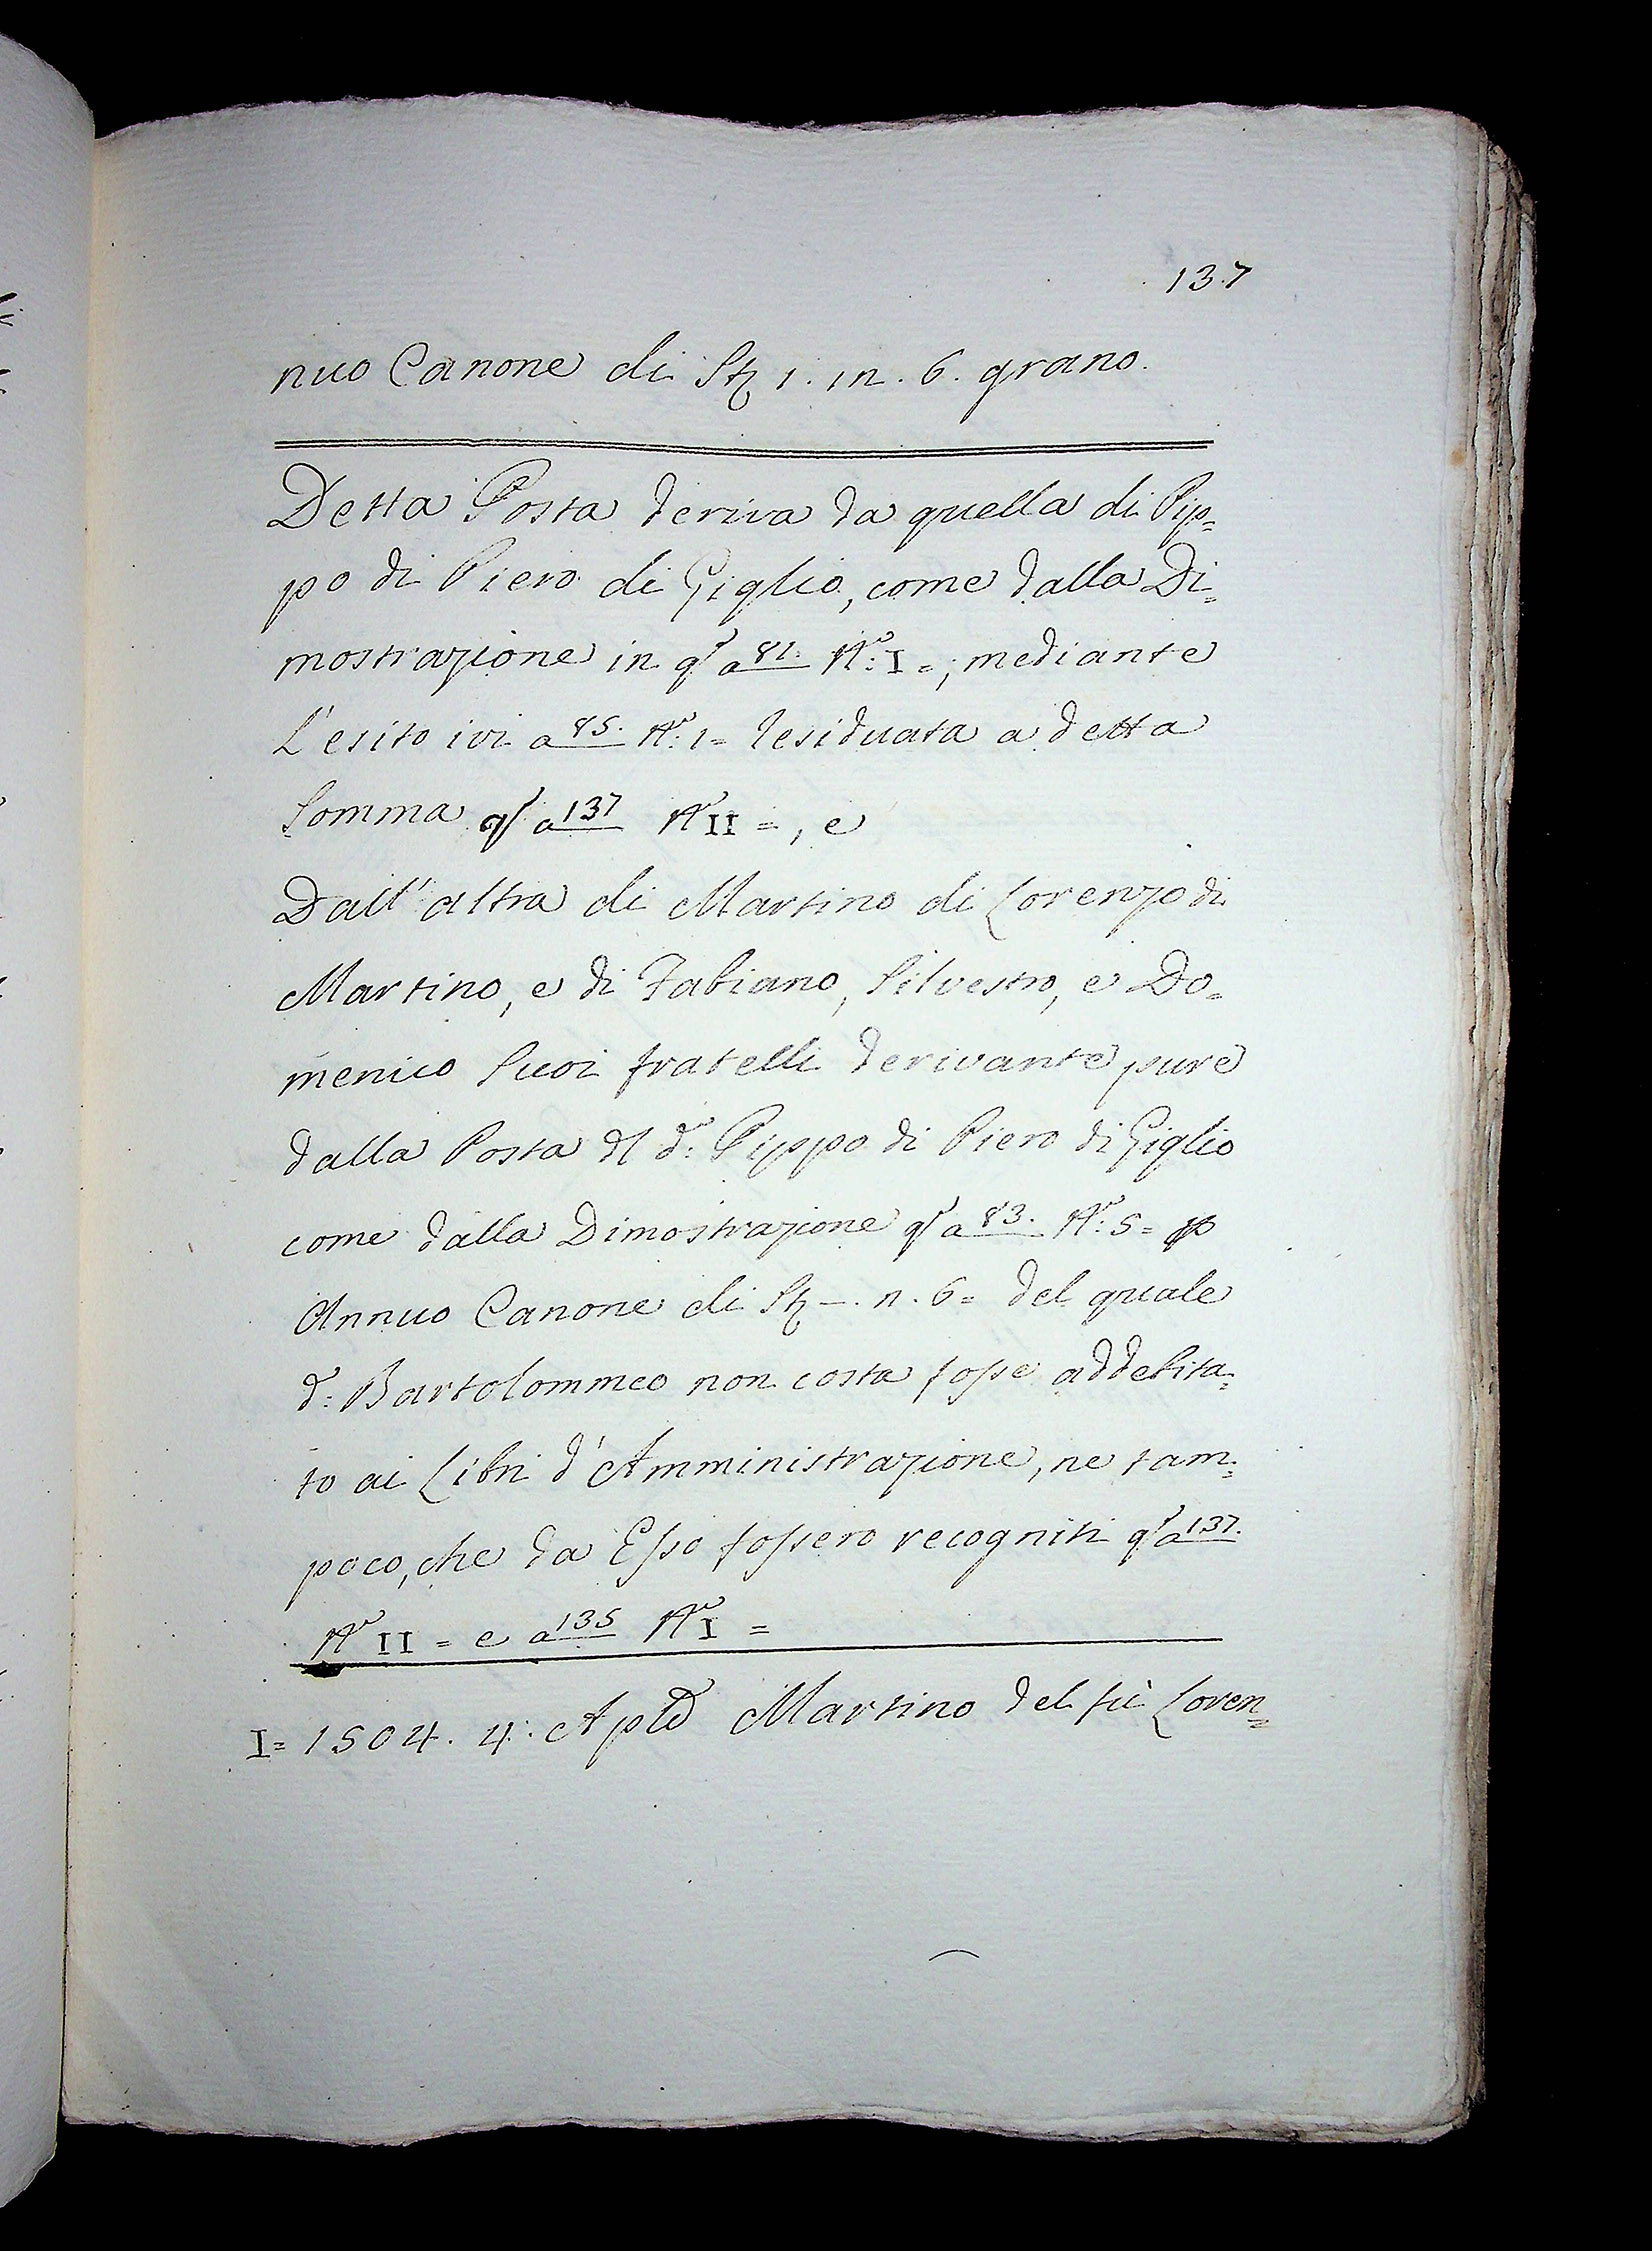 137
nuo Canone di St 1. in. 6. grano.
Detta Posta deriva da quella di Pip=
po di Piero di Giglio, come dalla Di=
mostrazione in qº a 81. Nº: I=, mediante
L'esito ivi a 85. Nº: 1= residuata a detta
Somma qº a 137 Nº II=, e
Dall'altra di Martino di Lorenzo di
Martino, e di Fabiano, Silvestro, e Do=
menico Suoi fratelli derivante pure
dalla Posta dl dº: Pippo di Piero di Giglio
come dalla Dimostrazione qº a 83. Nº: 5= p
Annuo Canone di St –. n. 6= del quale
dº: Bartolommeo non costa fosse addebita=
to ai Libri d'Amministrazione, ne tam=
poco, che da Esso fossero recogniti qº a 137.
Nº II= e a 135 Nº I=
I= 1504. 4: Aple Martino del fù Loren=